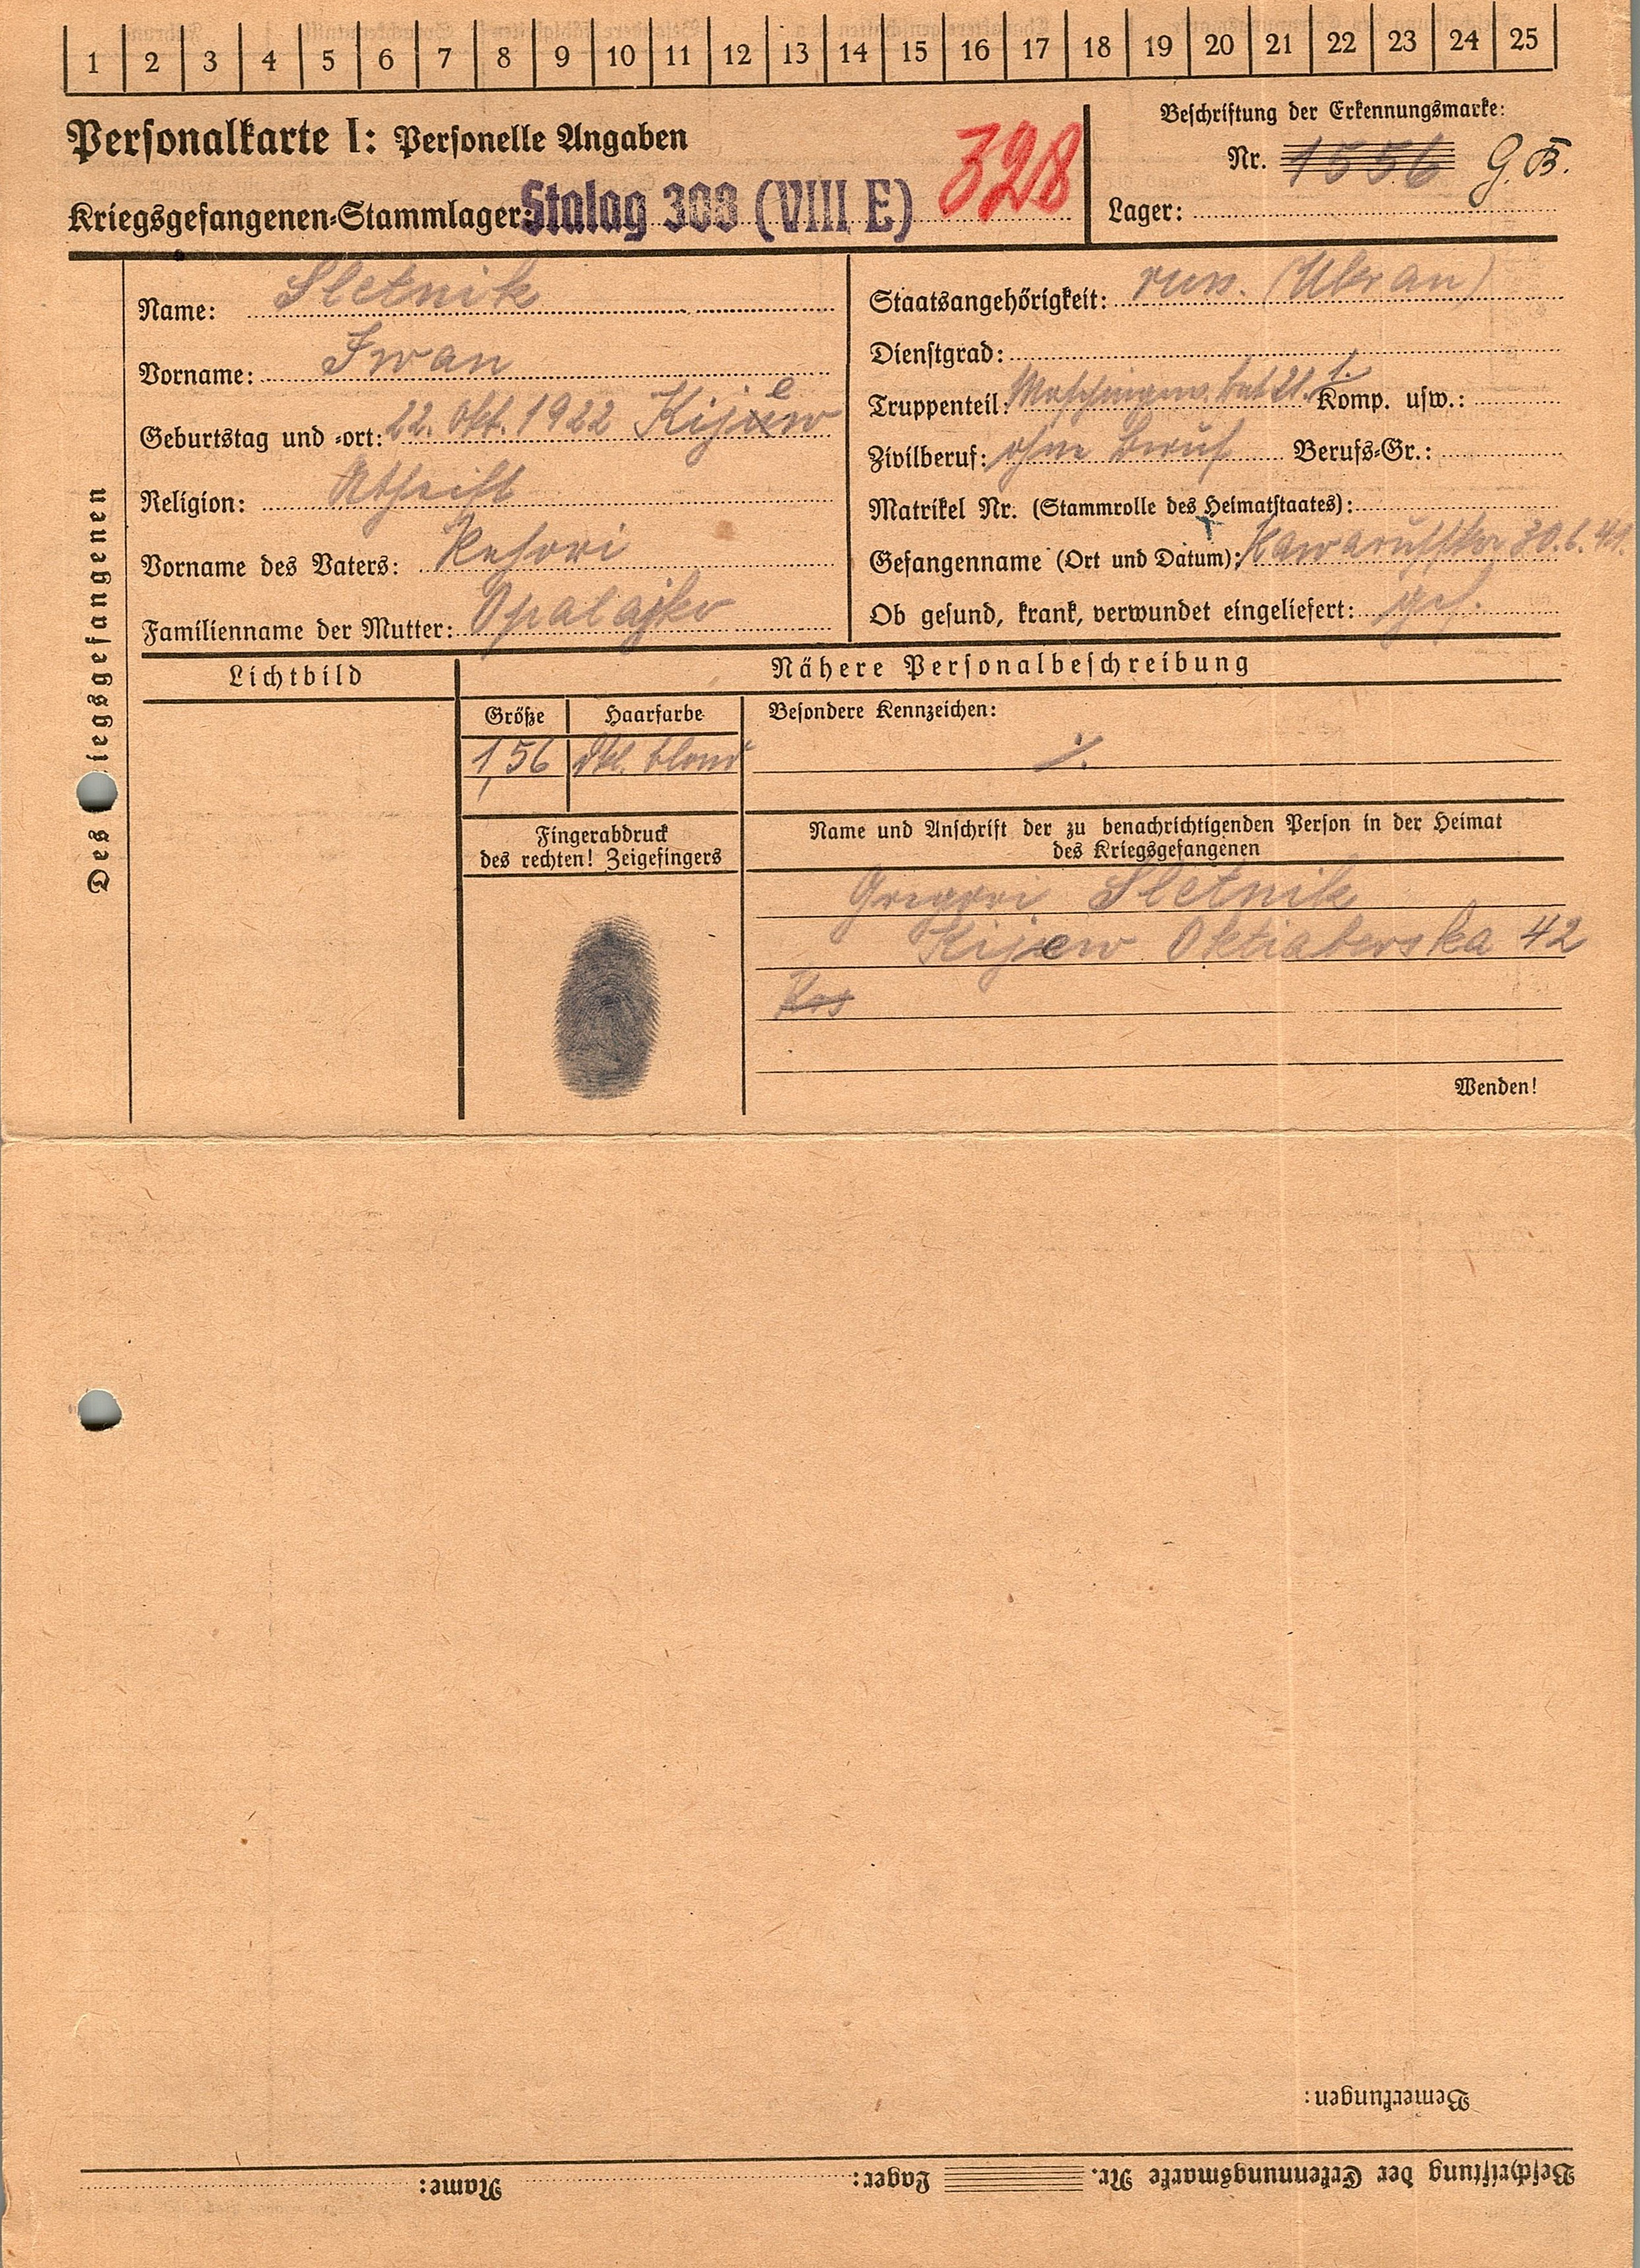 1 2 3 4 5 6 7 8 9 10 11 12 13 14 15 16 17 18 19 20 21 22 23 24 25
Personalkarte I: Personelle Angaben
328
Kriegsgefangenen-Stammlager: Stalag 308 (VIII E)
Beschriftung der Erkennungsmarke:
Nr. 1556 G. B.
Lager:
Des Kriegsgefangenen
Name: Sletnik
Vorname: Iwan
Geburtstag und -ort: 22. Okt. 1922 Kijew
Religion: Atheist
Vorname des Vaters:
Familienname der Mutter: Opalajko
Staatsangehörigkeit: russ. (Ukran)
Dienstgrad:
Truppenteil: Maschingew. bat 21. 1. Komp. usw.:
Zivilberuf: ohne Beruf Berufs-Gr.:
Matrikel Nr. (Stammrolle des Heimatstaates):
Gefangenname (Ort und Datum): 30.6.41.
Ob gesund, krank, verwundet eingeliefert: gef.
Lichtbild
Nähere Personalbeschreibung
Größe Haarfarbe Besondere Kennzeichen:
1,56 dkl. blond ./.
Fingerabdruck
des rechten! Zeigefingers
Name und Anschrift der zu benachrichtigenden Person in der Heimat
des Kriegsgefangenen
Gregori Sletnik
Kijew Oktiaberska 42
Wenden!
Bemerkungen:
Beschriftung der Erkennungsmarke Nr. Lager: Name: